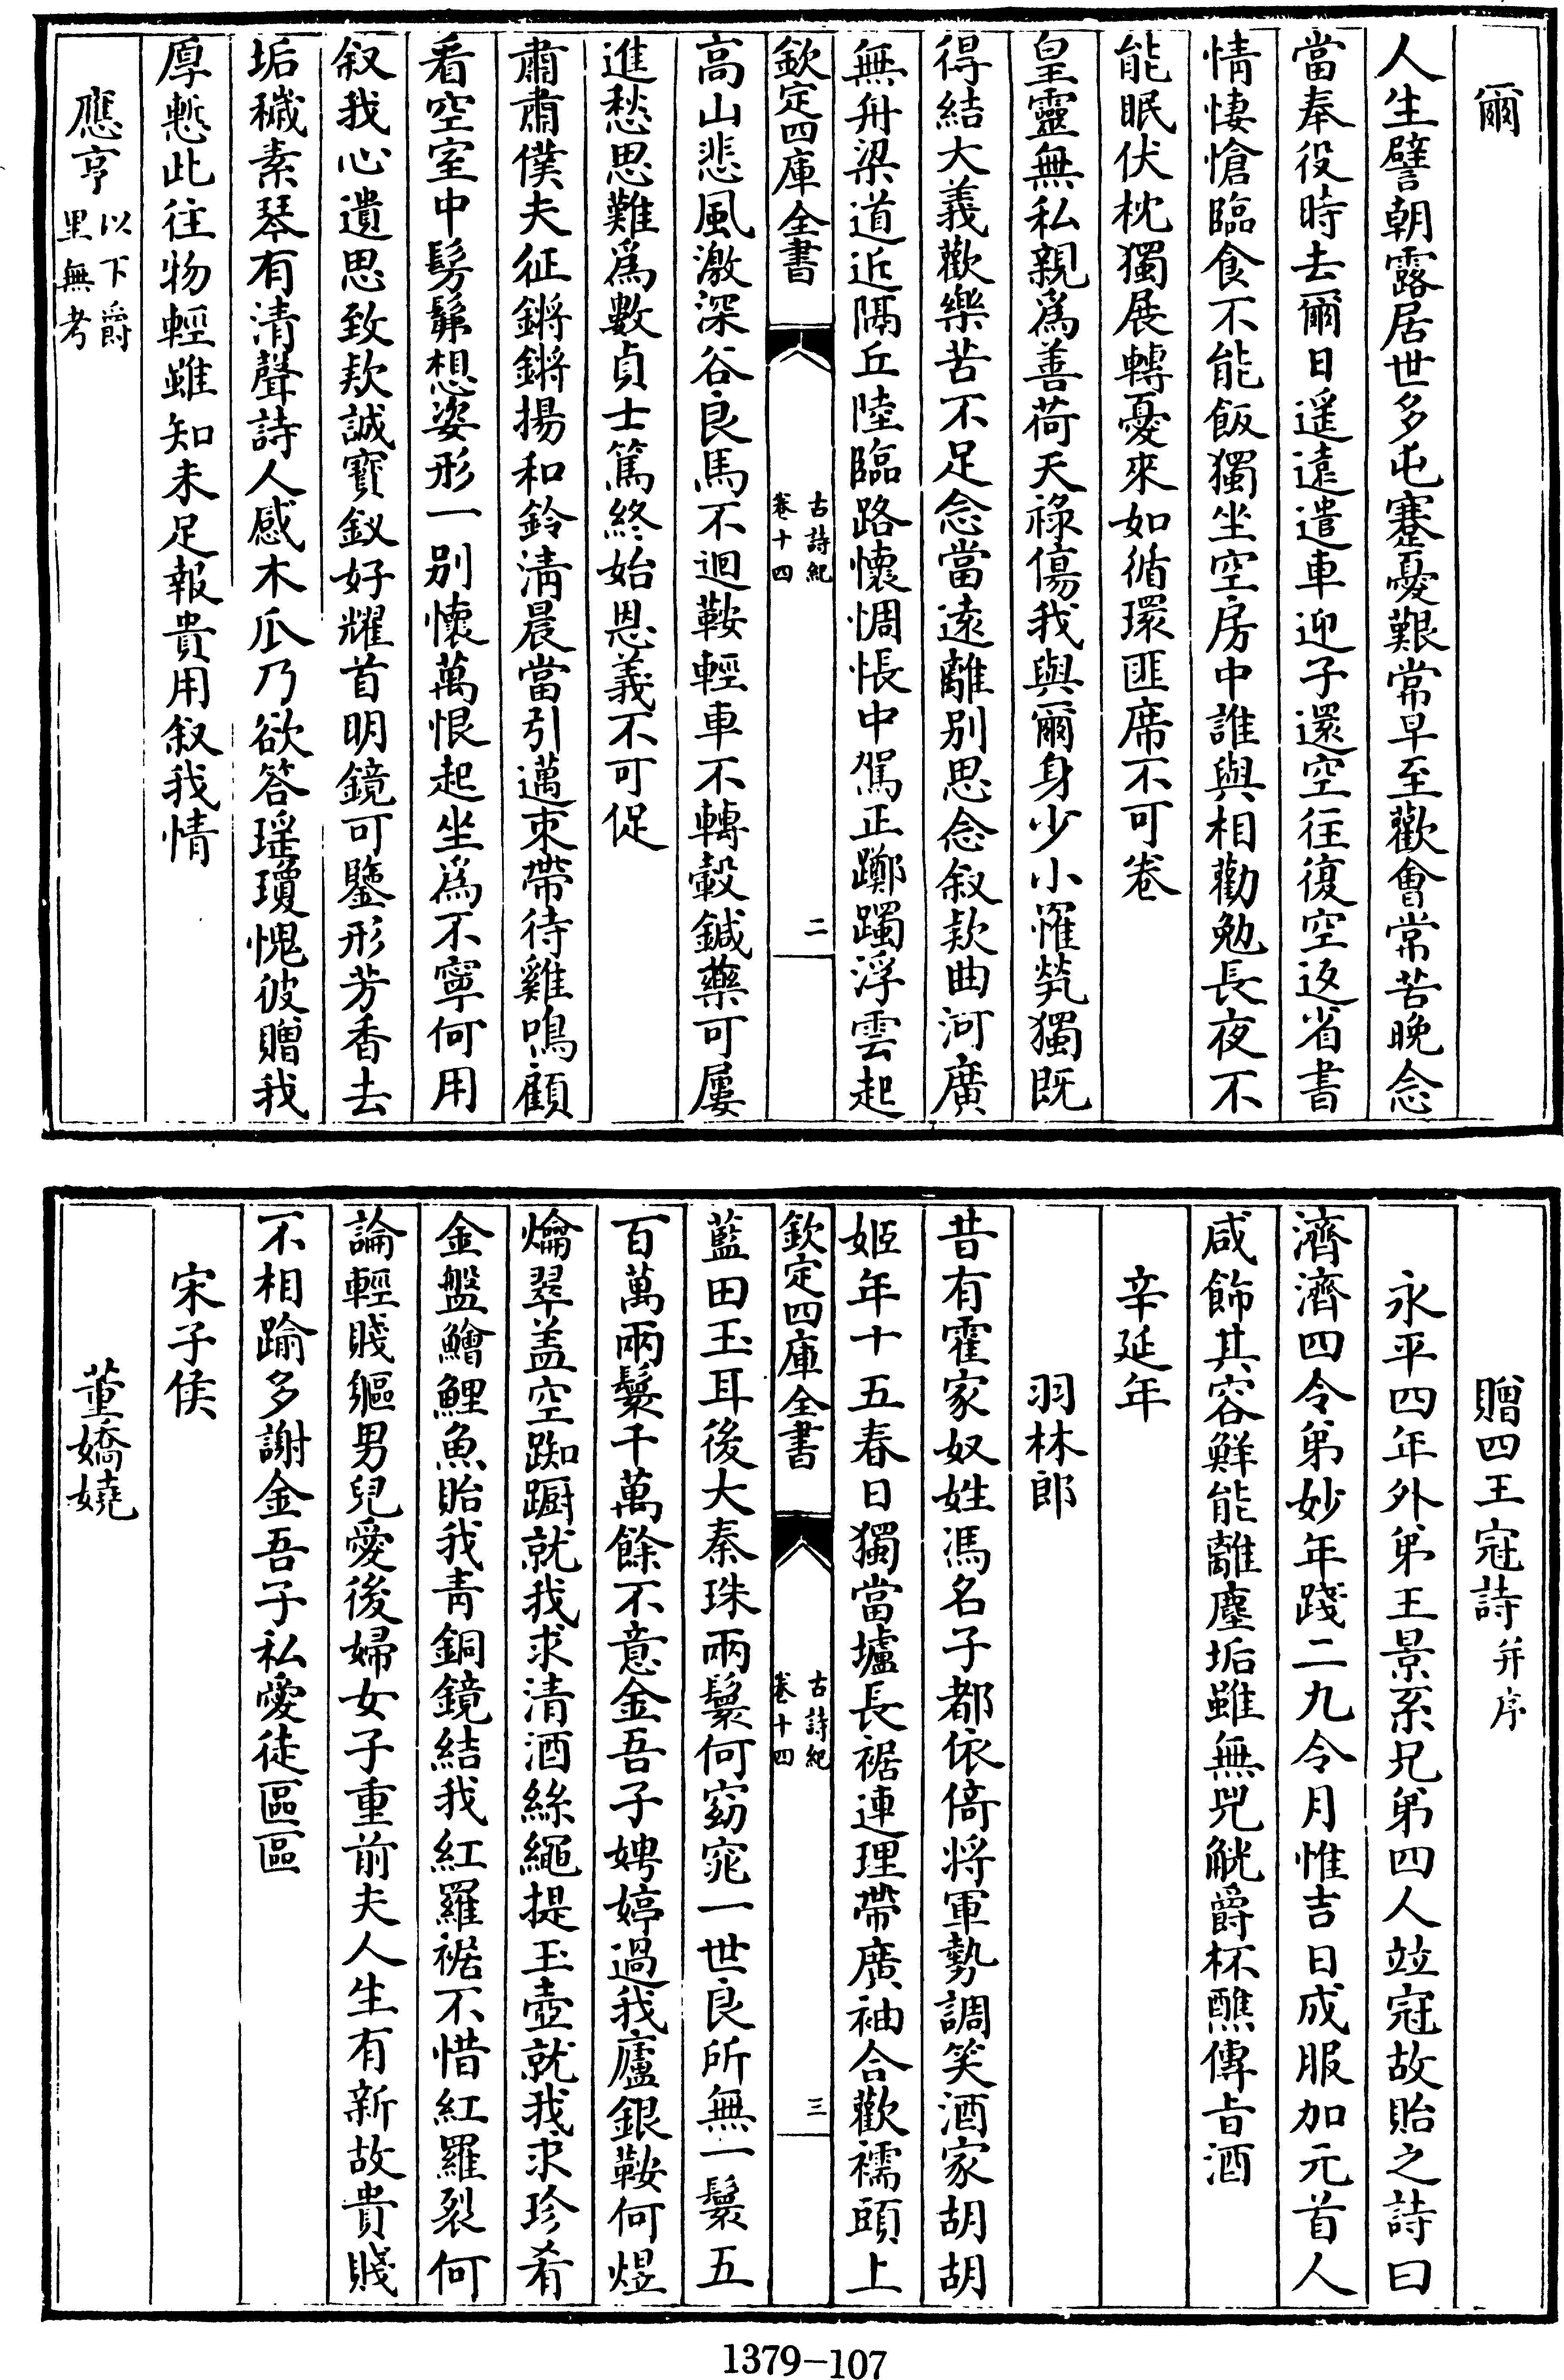 爾
人生譬朝露居世多屯蹇憂艱常早至歡會常苦晚念
當奉役時去爾日遥遠遣車迎子還空往復空返省書
情悽愴臨食不能飯獨坐空房中誰與相勸勉長夜不
能眠伏枕獨展轉憂來如循環匪席不可卷
皇靈無私親爲善荷天祿傷我與爾身少小罹煢獨既
得結大義歡樂苦不足念當遠離别思念叙款曲河廣
無舟梁道近隔丘陸臨路懷惆悵中駕正躑躅浮雲起
欽定四庫全書
古詩紀
卷十四
二
高山悲風激深谷良馬不迴鞍輕車不轉轂鍼藥可屢
進愁思難爲數貞士篤終始恩義不可促
肅肅僕夫征鏘鏘揚和鈴清晨當引邁束帶待雞鳴顧
看空室中髣髴想姿形一别懷萬恨起坐爲不寧何用
叙我心遺思致款誠寶釵好耀首明鏡可鑒形芳香去
垢穢素琴有清聲詩人感木瓜乃欲答瑶瓊愧彼贈我
厚慙此往物輕雖知未足報貴用叙我情
應亨以下爵里無考
贈四王冠詩并序
永平四年外弟王景系兄弟四人竝冠故貽之詩曰
濟濟四令弟妙年踐二九令月惟吉日成服加元首人
咸飾其容鮮能離塵垢雖無兕觥爵杯醮傳旨酒
辛延年
羽林郎
昔有霍家奴姓馮名子都依倚將軍勢調笑酒家胡胡
姬年十五春日獨當壚長裾連理帶廣袖合歡襦頭上
欽定四庫全書
古詩紀
卷十四
三
藍田玉耳後大秦珠兩鬟何窈窕一世良所無一鬟五
百萬兩鬟千萬餘不意金吾子娉婷過我廬銀鞍何煜
爚翠盖空踟蹰就我求清酒絲繩提玉壺就我求珍肴
金盤鱠鯉魚貽我青銅鏡結我紅羅裾不惜紅羅裂何
論輕賤軀男兒愛後婦女子重前夫人生有新故貴賤
不相踰多謝金吾子私愛徒區區
宋子侯
董嬌嬈
1379-107